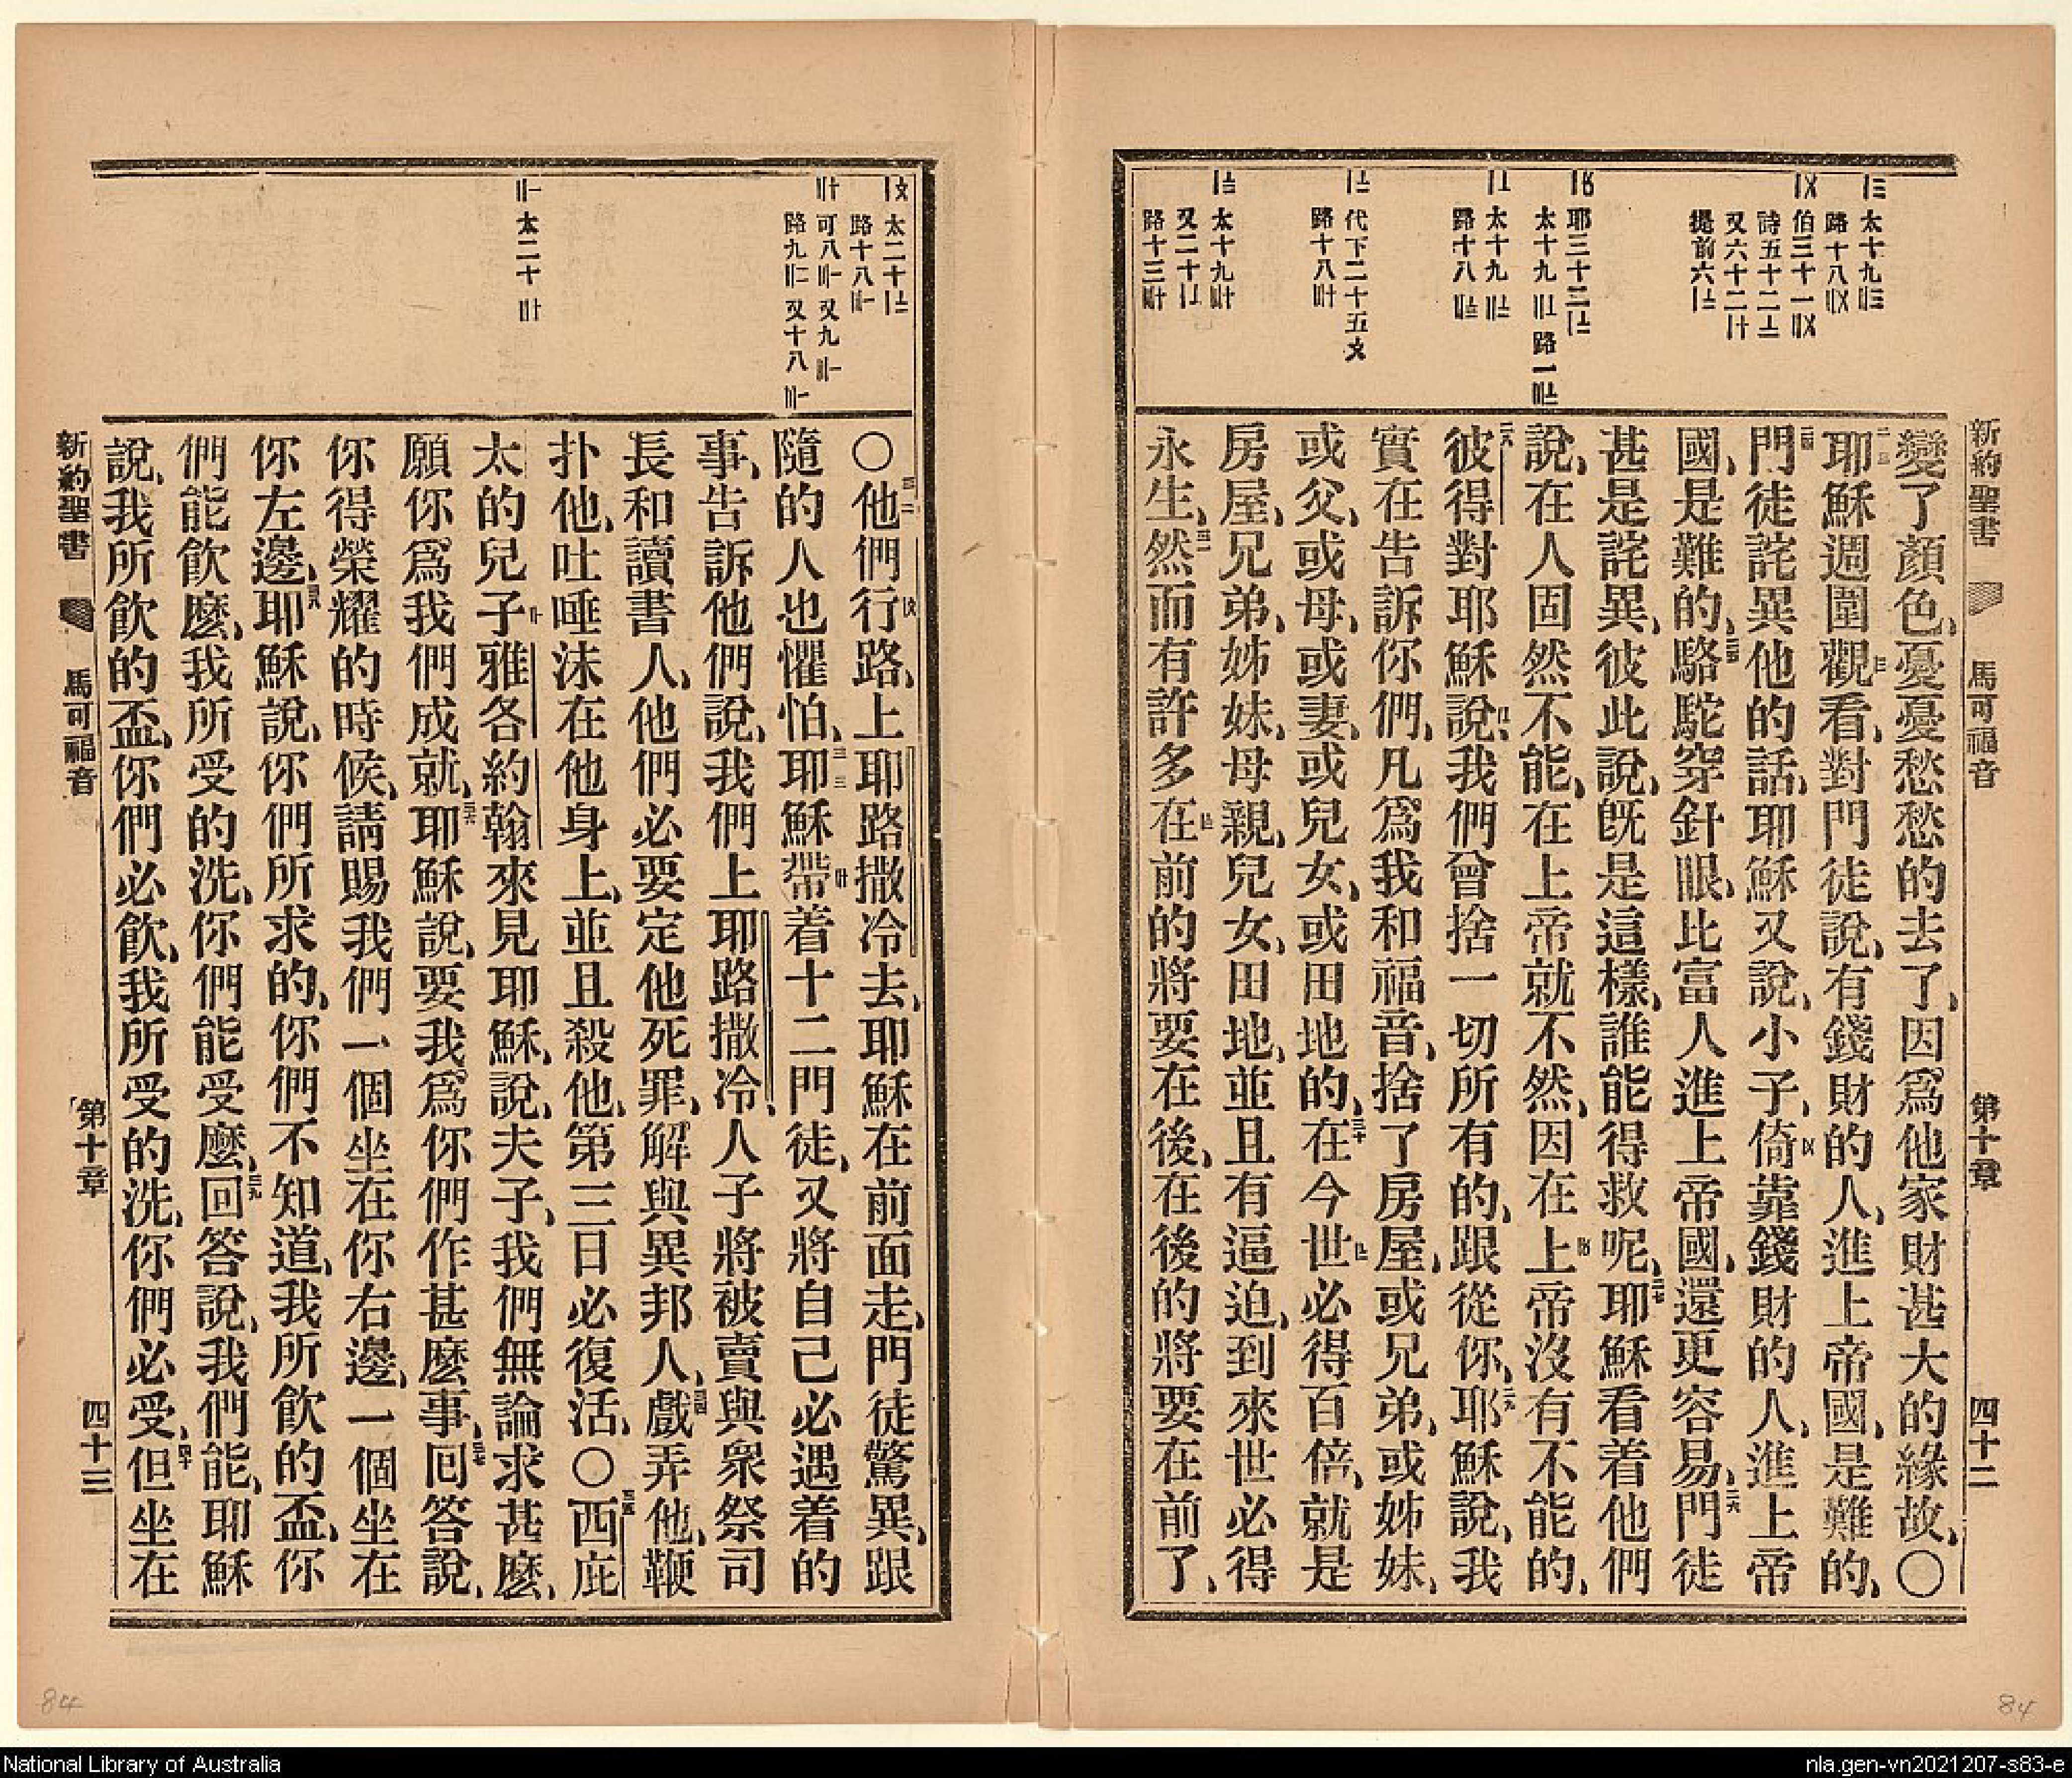 新約聖書 馬可福音 第十章 四十二
變了顏色、憂憂愁愁的去了、因爲他家財甚大的緣故、〇
耶穌週圍觀看、對門徒說、有錢財的人、進上帝國、是難的、
門徒詫異他的話、耶穌又說、小子、倚靠錢財的人、進上帝
國、是難的、駱駝穿針眼、比富人進上帝國、還更容易、門徒
甚是詫異、彼此說、旣是這樣、誰能得救呢、耶穌看着他們
說、在人固然不能、在上帝就不然、因在上帝沒有不能的、
彼得對耶穌說、我們曾捨一切所有的、跟從你、耶穌說、我
實在告訴你們、凡爲我和福音、捨了房屋、或兄弟、或姊妹、
或父、或母、或妻、或兒女、或田地的、在今世必得百倍、就是
房屋、兄弟、姊妹、母親、兒女、田地、並且有逼迫、到來世必得
永生、然而有許多在前的將要在後、在後的將要在前了、
〇他們行路、上耶路撒冷去、耶穌在前面走、門徒驚異、跟
隨的人也懼怕、耶穌帶着十二門徒、又將自己必遇着的
事、告訴他們說、我們上耶路撒冷、人子將被賣與衆祭司
長和讀書人、他們必要定他死罪、解與異邦人、戲弄他、鞭
扑他、吐唾沫在他身上、並且殺他、第三日必復活、〇西庇
太的兒子雅各約翰來見耶穌、說、夫子、我們無論求甚麽、
願你爲我們成就、耶穌說、要我爲你們作甚麽事、回答說、
你得榮耀的時候、請賜我們一個坐在你右邊、一個坐在
你左邊、耶穌說、你們所求的、你們不知道、我所飮的盃、你
們能飮麽、我所受的洗、你們能受麽、回答說、我們能、耶穌
說、我所飮的盃、你們必飮、我所受的洗、你們必受、但坐在
新約聖書 馬可福音 第十章 四十三
84
84
National Library of Australia
nla.gen-vn2021207-s83-e